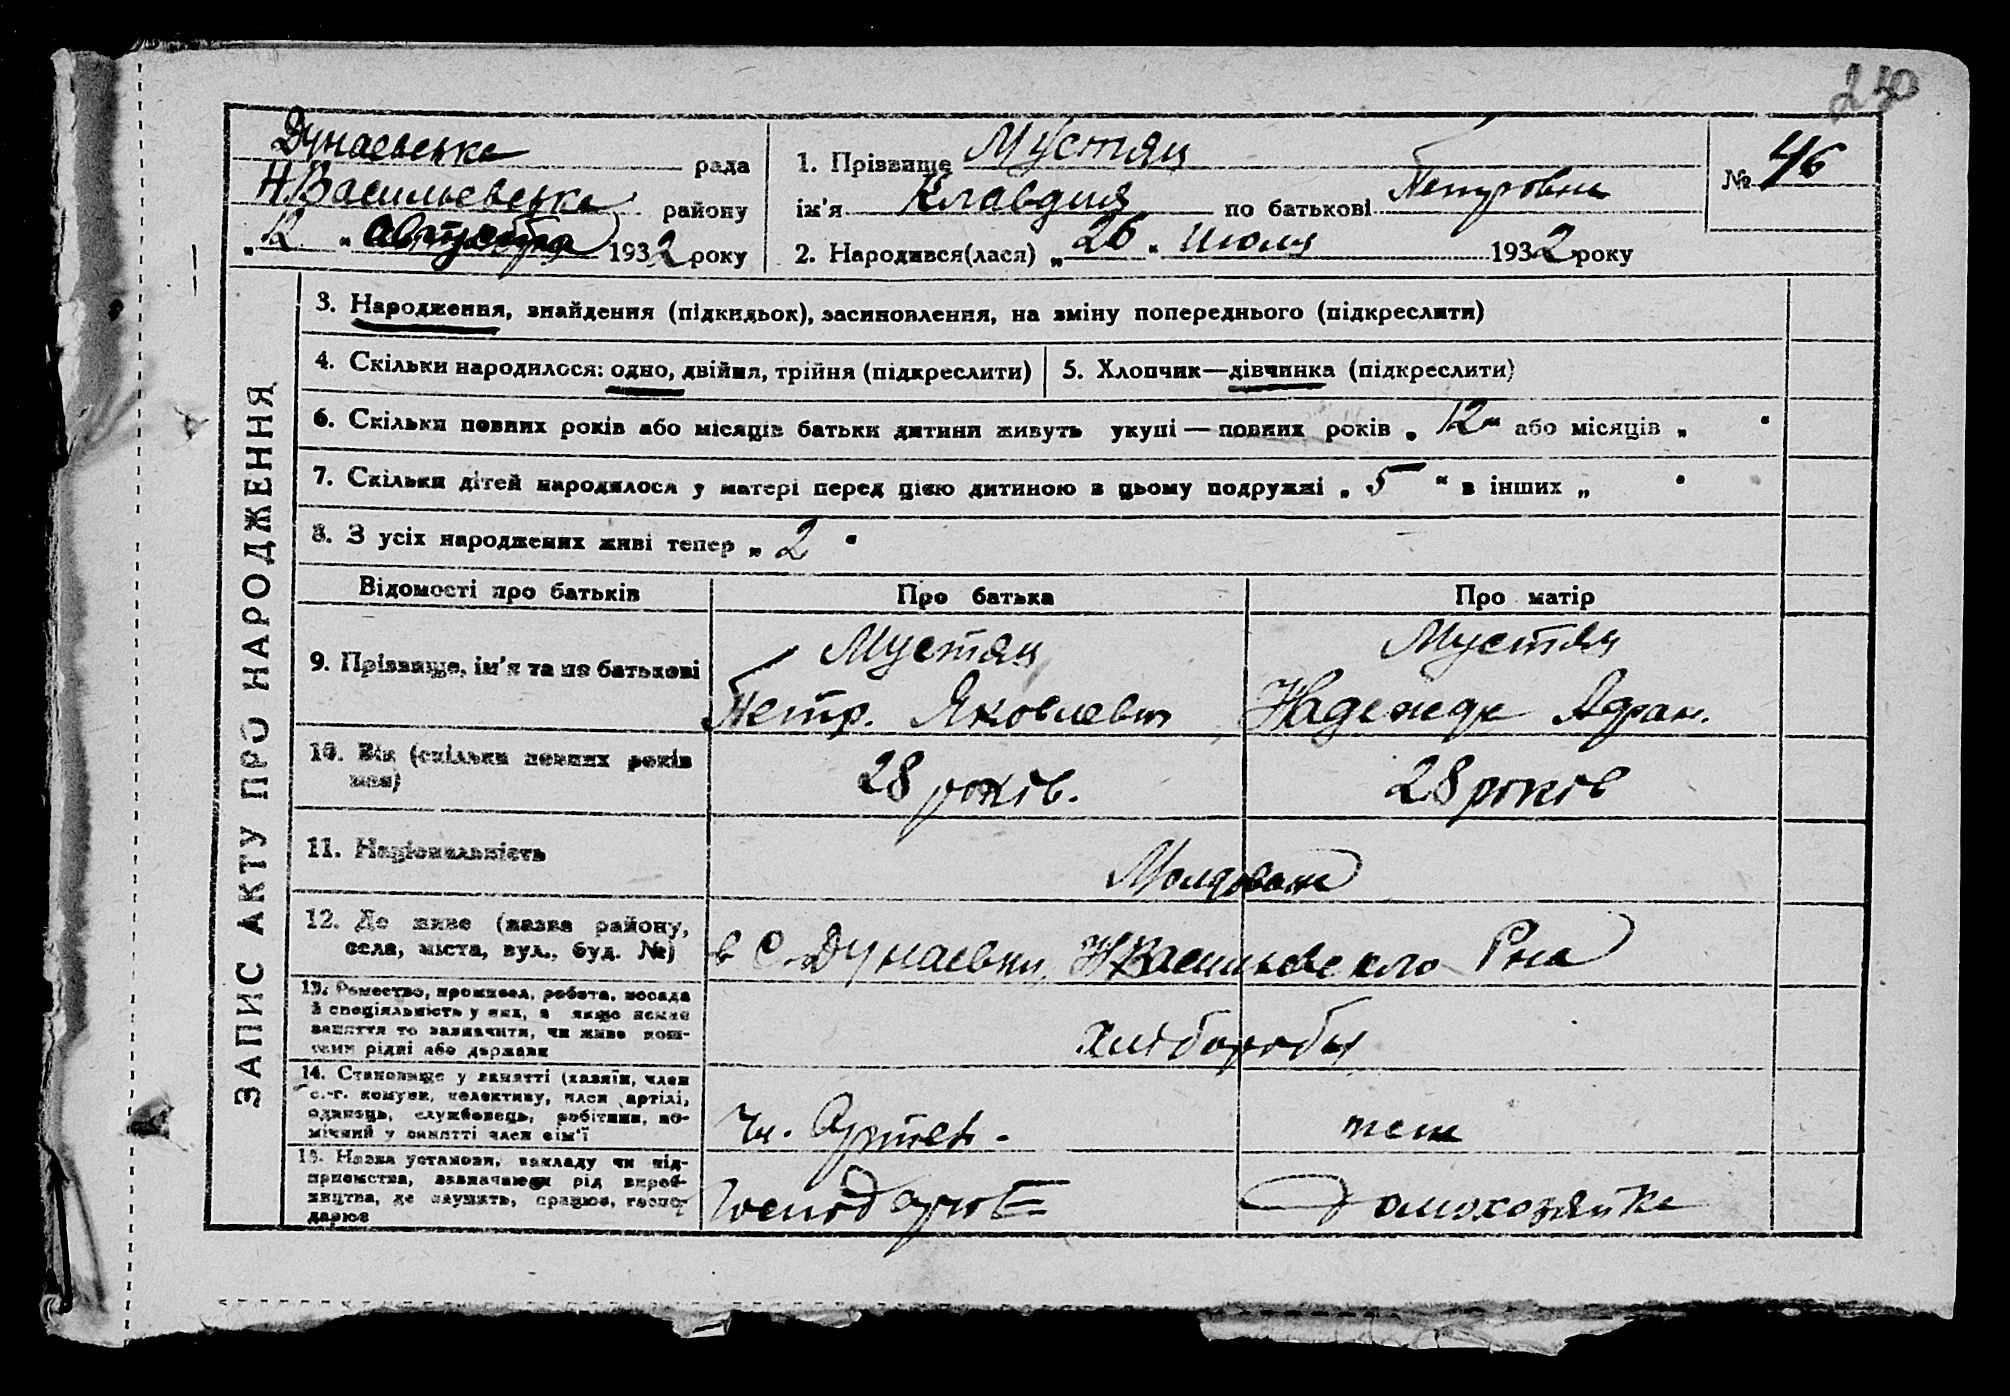 240
Дунаевська рада
Н.Васильевська району
„12“ августа 1932 року
1. Прізвище Мустяц
ім'я Клавдия по батькові Петровна
№ 46
2. Народився(лася) „26“ июля 1932 року
ЗАПИС АКТУ ПРО НАРОДЖЕННЯ
3. Народження, знайдення (підкидьок), засиновлення, на зміну попереднього (підкреслити)
4. Скільки народилося: одно, двійня, трійня (підкреслити)
5. Хлопчик—дівчинка (підкреслити)
6. Скільки повних років або місяців батьки дитини живуть укупі — повних років „12“ або місяців „ “
7. Скільки дітей народилося у матері перед цією дитиною в цьому подружжі „5“ в інших „ “
8. З усіх народжених живі тепер „2“
Відомості про батьків
Про батька
Про матір
9. Прізвище, ім'я та по батькові
Мустяц
Петр. Яковлевич
Мустяц
Надежда Адам.
10. Вік (скільки повних років
має)
28 років.
28 років
11. Національність
Молдоване
12. Де живе (назва району,
села, міста, вул., буд. №)
в С. Дунаевки, Н Васильевского Рна
13. Ремество, промисел, робота, посада
й спеціяльність у них, а якщо немає
заняття то зазначити, чи живе кош-
тами рідні або держави
хлібороби
14. Становище у занятті (хазяїн, член
с.-г. комуни, колективу, член артілі,
одинець, службовець, робітник, по-
мічний у занятті член сім'ї
Чл. Артели.
теж
15. Назва установи, закладу чи під-
приємства, зазначаючи рід вироб-
ництва, де служить, працює, госпо-
дарює
Господарює
Домохозяйка